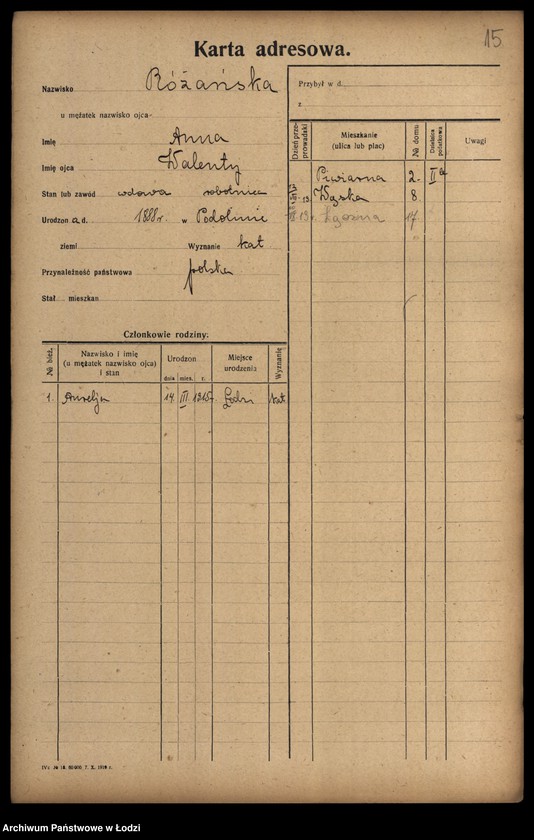 15
Karta adresowa.
Nazwisko Różańska
u mężatek nazwisko ojca
Imię Anna
Imię ojca Walenty
Stan lub zawód wdowa robotnica
Urodzona d. 1888 r. w Podolinie
ziemi Wyznanie kat
Przynależność państwowa polska
Stał. mieszkan.
Członkowie rodziny:
№ bież. Nazwisko i imię (u mężatek nazwisko ojca) i stan Urodzon dnia mies. r. Miejsce urodzenia Wyznanie
1. Aurelja 14 III 1915 r. Łódź kat
Przybył w d.
z
Dzień przeprowadzki Mieszkanie (ulica lub plac) № domu Dzielnica podatkowa Uwagi
Piwiarna 2. II a
Wąska 8.
17
IVa № 18. 60000 7. X. 1919 r.
Archiwum Państwowe w Łodzi